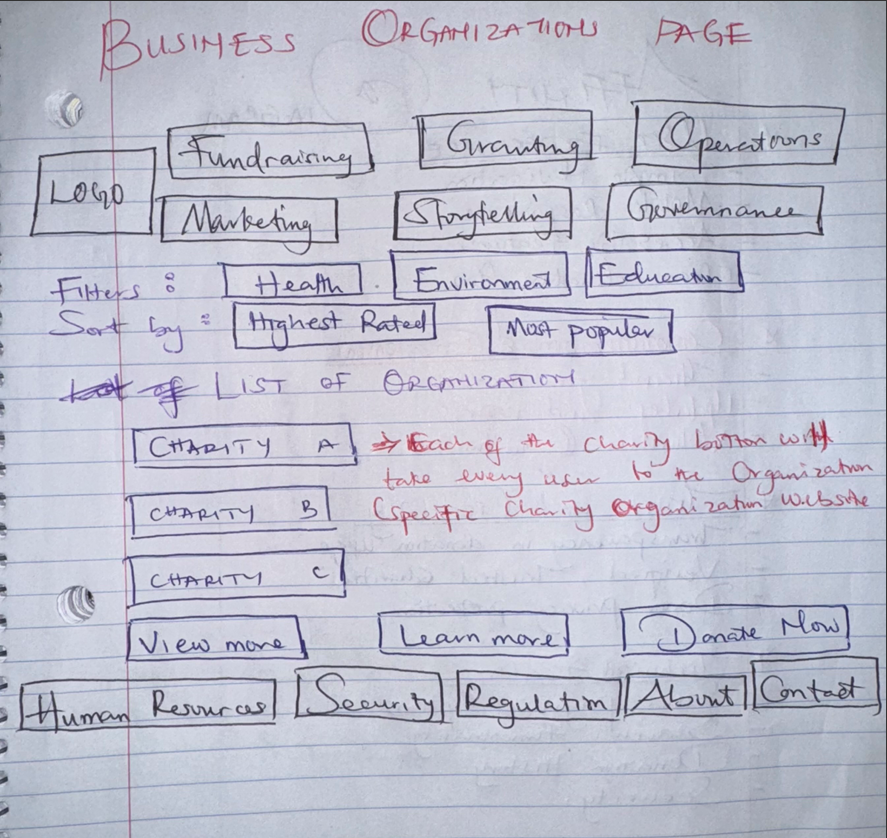 BUSINESS ORGANIZATIONS PAGE
LOGO Fundraising Granting Operations
Marketing Storytelling Governnance
Filters : Health Environment Education
Sort by : Highest Rated Most popular
List of LIST OF ORGANIZATION
CHARITY A → Each of the Charity button will
take every user to the Organization
CHARITY B (specific Charity Organization website
CHARITY C
View more Learn more Donate Now
Human Resources Security Regulation About Contact